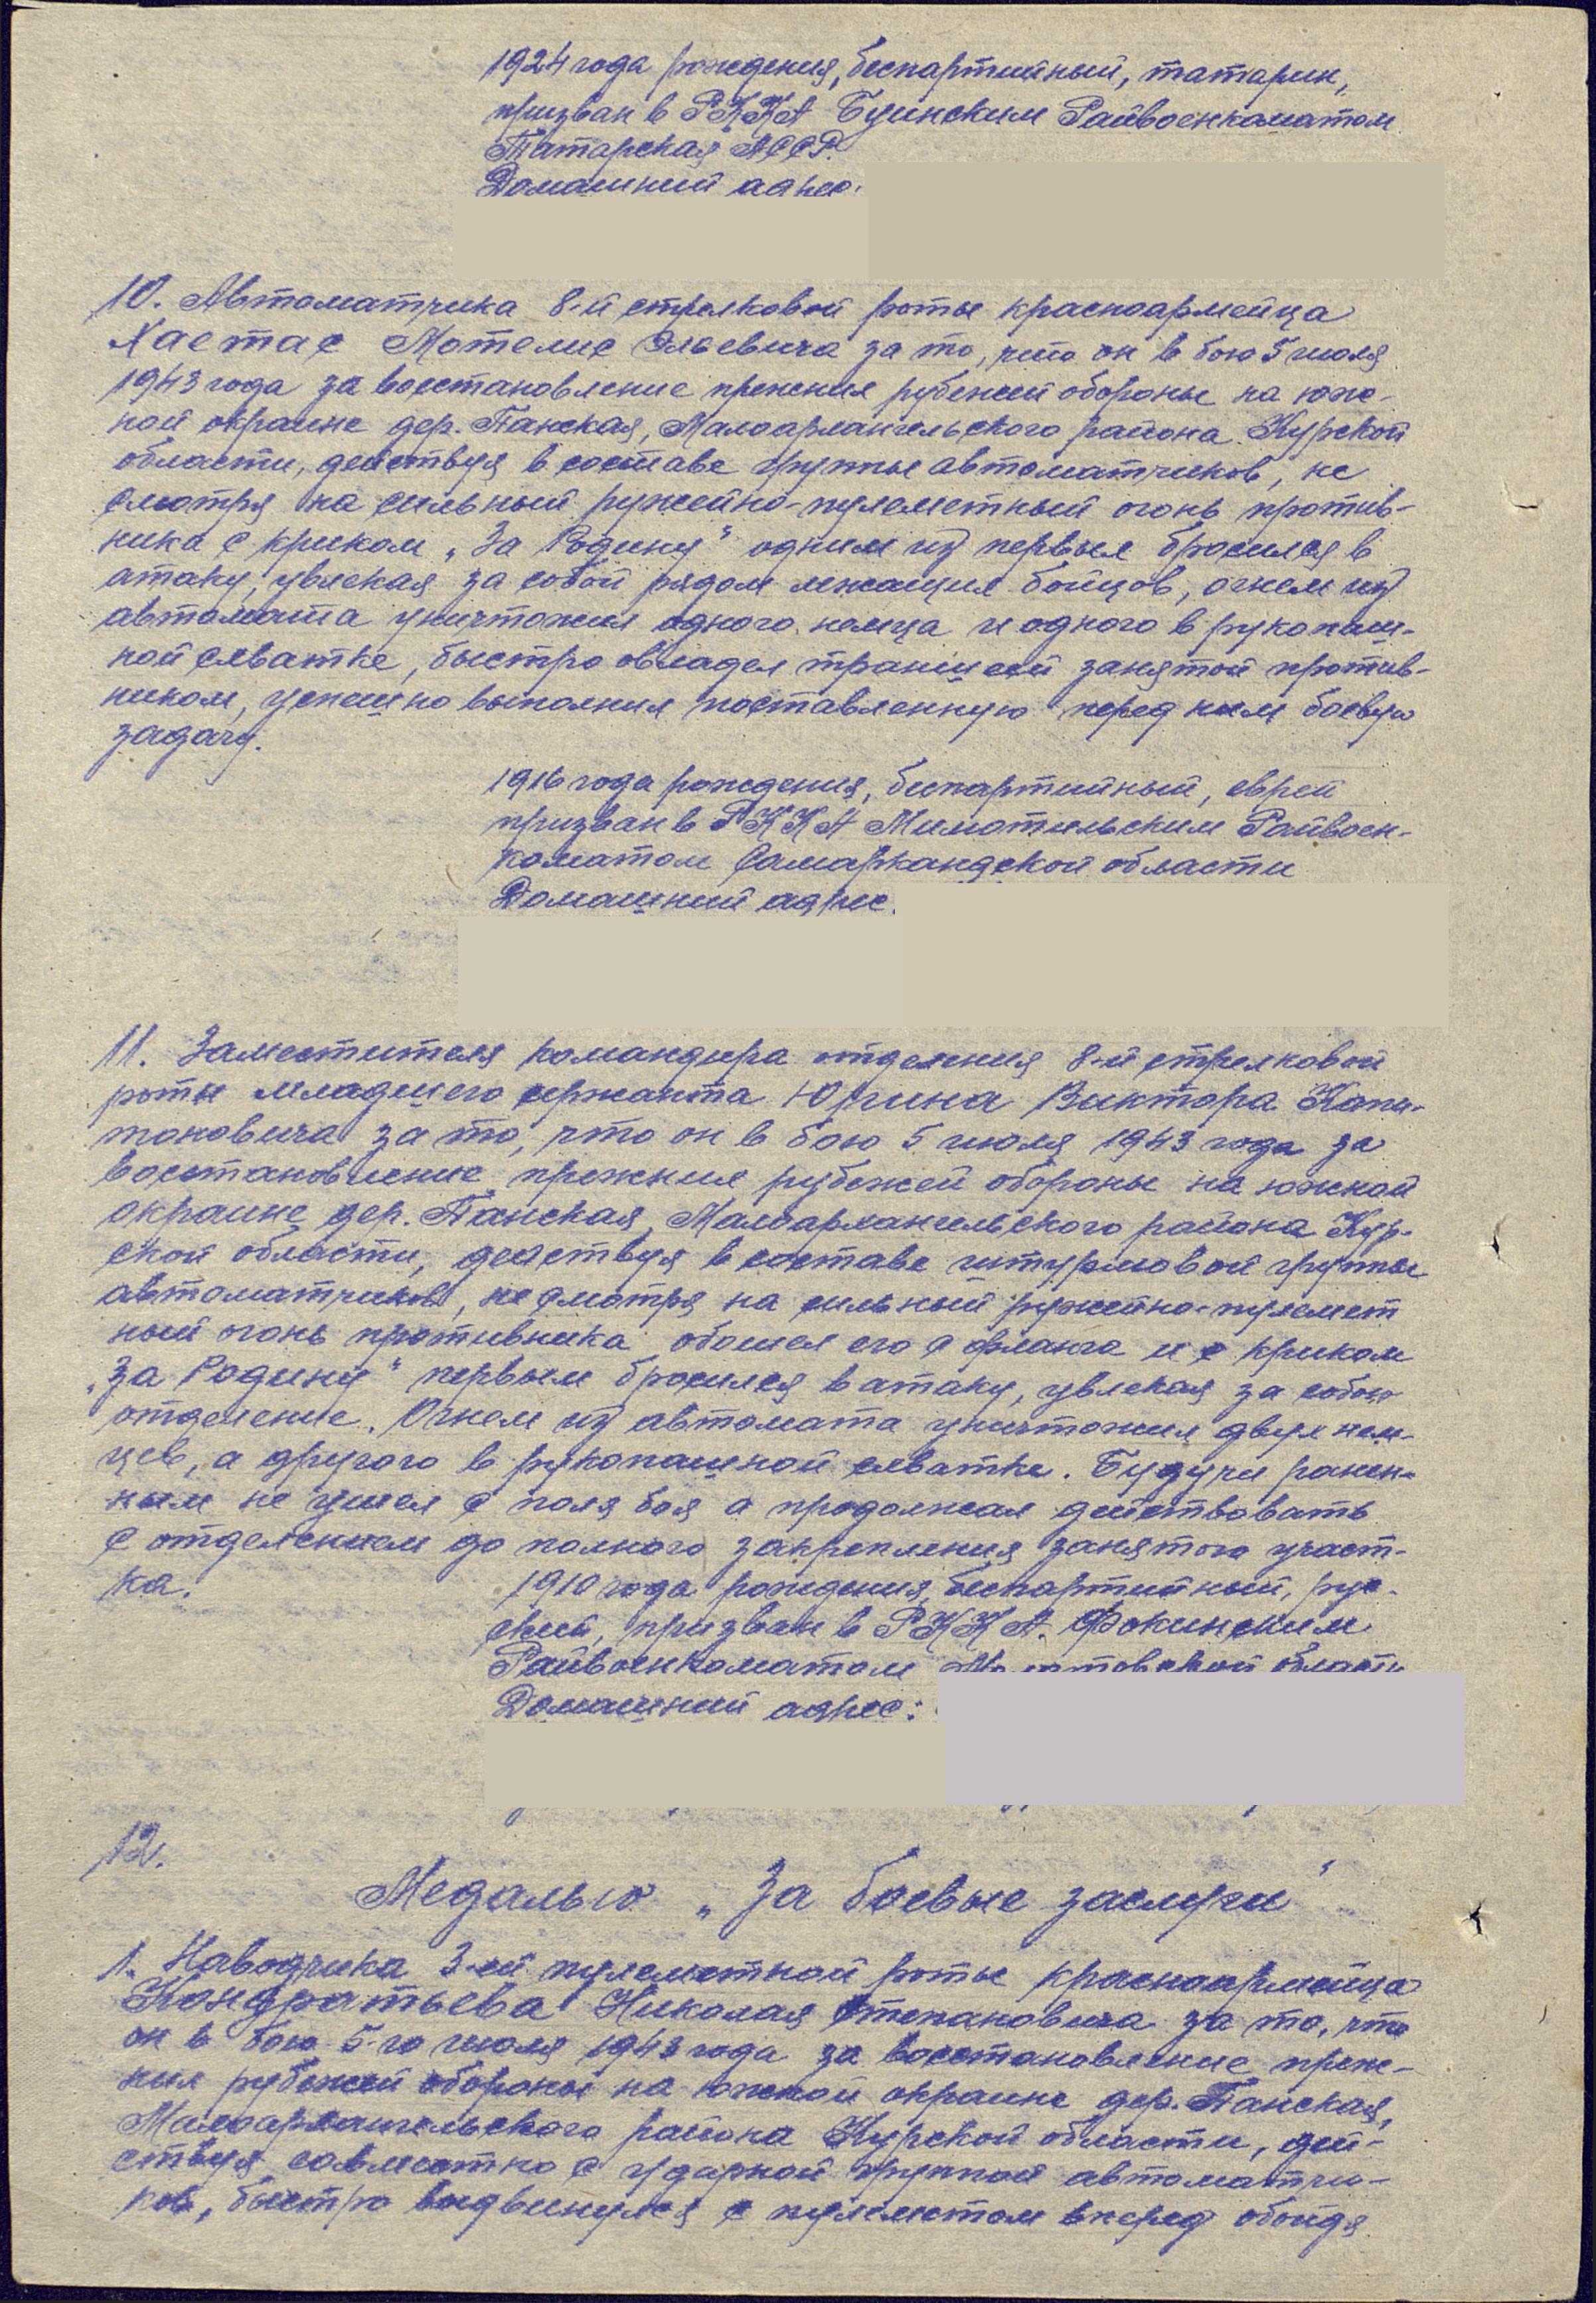 1924 года рождения, беспартийный, татарин,
призван в РККА Буинским Райвоенкоматом
Татарская АССР.
Домашний адрес.
10. Автоматчика 8-й стрелковой роты красноармейца
Хастас Мотелис Эльевича за то, что он в бою 5 июля
1943 года за восстановление прежних рубежей обороны на юж-
ной окраине дер. Панская, Малоархангельского района Курской
области, действуя в составе группы автоматчиков, не
смотря на сильный ружейно-пулеметный огонь против-
ника с криком „За Родину" одним из первых бросился в
атаку, увлекая за собой рядом лежащих бойцов, огнем из
автомата уничтожил одного немца и одного в рукопаш-
ной схватке, быстро овладел траншеей занятой против-
ником, успешно выполнил поставленную перед ним боевую
задачу.
1916 года рождения, беспартийный, еврей
призван в РККА Райвоен-
коматом Самаркандской области
Домашний адрес.
11. Заместителя командира отделения 8-й стрелковой
роты младшего сержанта Юргина Виктора Капи-
тоновича за то, что он в бою 5 июля 1943 года за
восстановление прежних рубежей обороны на южной
окраине дер. Панская, Малоархангельского района Кур-
ской области, действуя в составе штурмовой группы
автоматчиков, не смотря на сильный ружейно-пулемет
ный огонь противника обошел его с фланга и с криком
„За Родину" первым бросился в атаку, увлекая за собою
отделение. Огнем из автомата уничтожил двух нем-
цев, а другого в рукопашной схватке. Будучи ранен-
ным не ушел с поля боя а продолжал действовать
с отделением до полного закрепления занятого участ-
ка.
1910 года рождения, беспартийный, рус-
ский, призван в РККА. Фокинским
Райвоенкоматом Молотовской области
Домашний адрес:
12.
Медалью „За боевые заслуги"
1. Наводчика 3-ей пулеметной роты красноармейца
Кондратьева Николая Степановича за то, что
он в бою 5-го июля 1943 года за восстановление преж-
них рубежей обороны на южной окраине дер. Панская,
Малоархангельского района Курской области, дей-
ствуя совместно с ударной группой автоматчи-
ков, быстро выдвинулся с пулеметом вперед обойдя